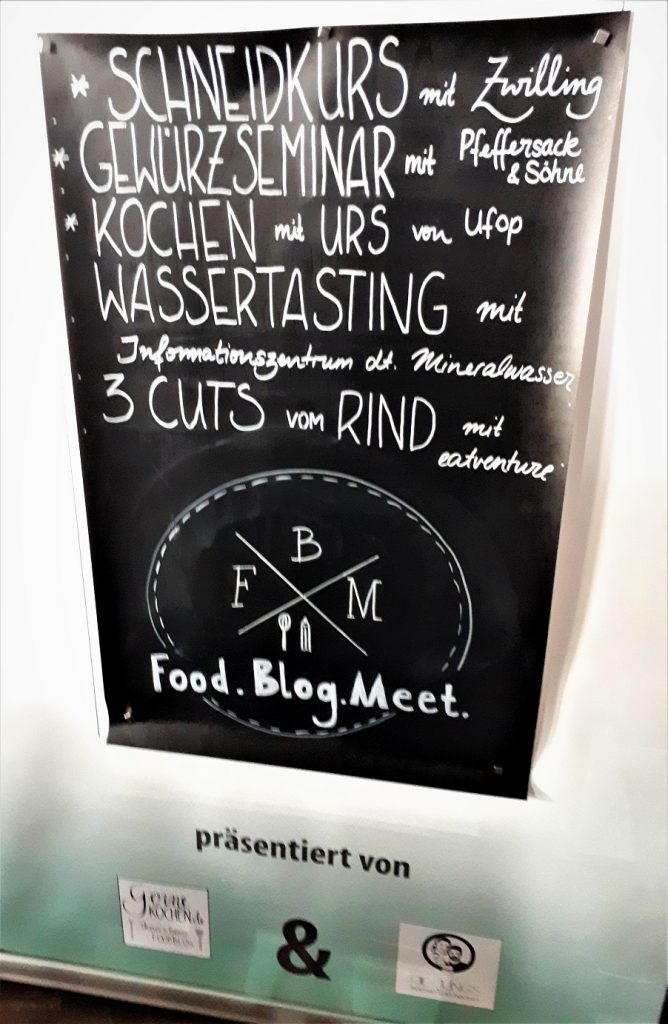 * SCHNEIDKURS mit Zwilling
* GEWÜRZSEMINAR mit Pfeffersack & Söhne
* KOCHEN mit URS von Ufop
WASSERTASTING mit
Informationszentrum dt. Mineralwasser
3 CUTS vom RIND mit
eatventure
B
F M
Food.Blog.Meet.
präsentiert von
gerne
KOCHEN.de
&
DIE JUNGS